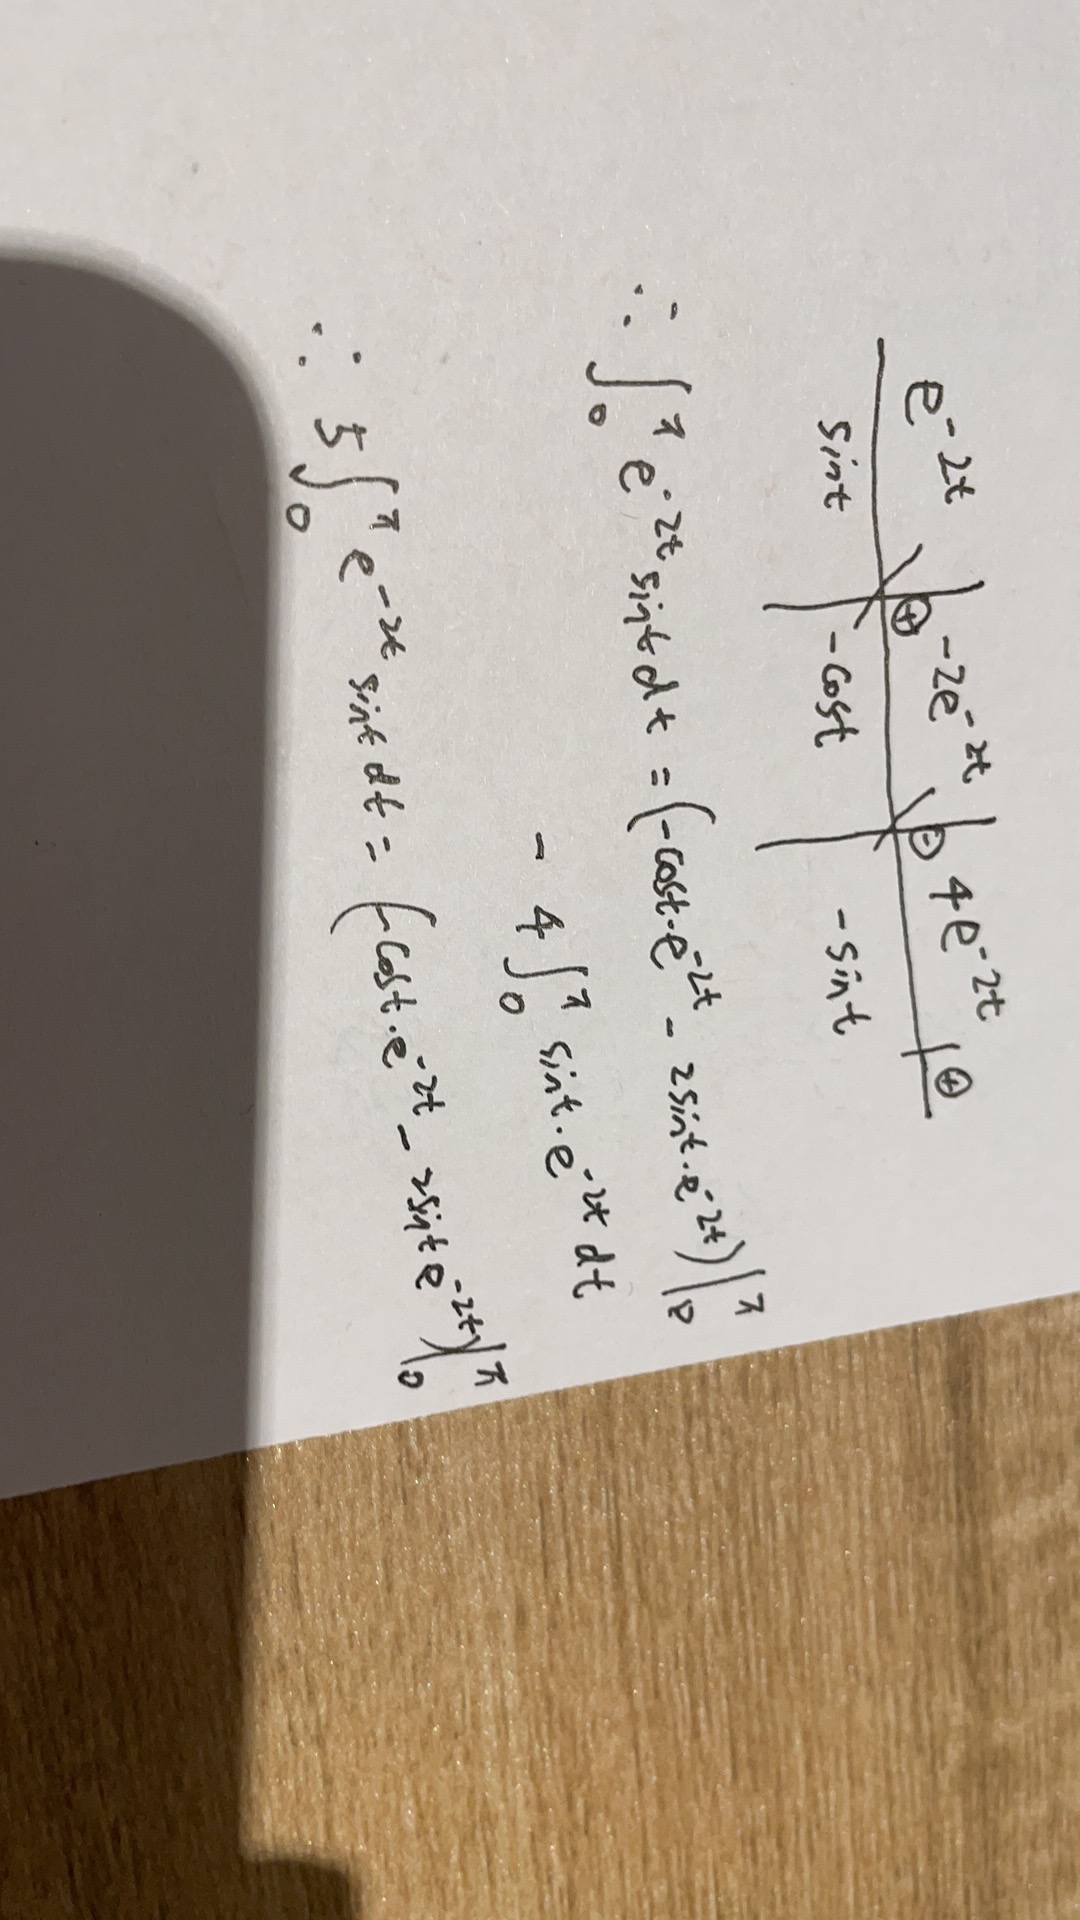 e^{-2t} ⊕ -2e^{-2t} ⊖ 4e^{-2t} ⊕
sint -cost -sint
∴ ∫_0^π e^{-2t} sint dt = (-cost·e^{-2t} - 2sint·e^{-2t})|_0^π
- 4∫_0^π sint·e^{-2t} dt
∴ 5∫_0^π e^{-2t} sint dt = (-cost·e^{-2t} - 2sint e^{-2t})|_0^π